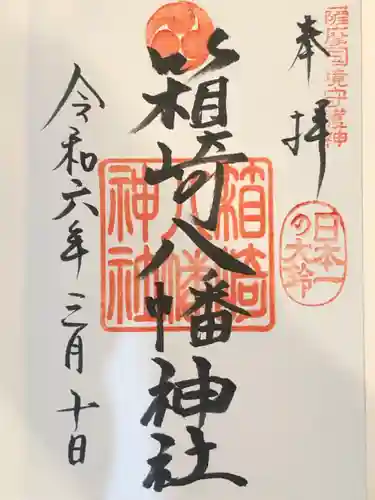 薩摩国境守護神
奉拝
日本一
の大鈴
箱崎八幡神社
箱崎
八幡
神社
令和六年三月十日